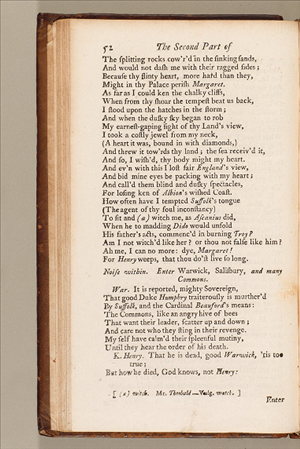 52 The Second Part of
The splitting rocks cow'r'd in the sinking sands,
And would not dash me with their ragged sides;
Because thy flinty heart, more hard than they,
Might in thy Palace perish Margaret.
As far as I could ken the chalky cliffs,
When from thy shoar the tempest beat us back,
I stood upon the hatches in the storm;
And when the dusky sky began to rob
My earnest-gaping sight of thy Land's view,
I took a costly jewel from my neck,
(A heart it was, bound in with diamonds,)
And threw it tow'rds thy land; the sea receiv'd it,
And so, I wish'd, thy body might my heart.
And ev'n with this I lost fair England's view,
And bid mine eyes be packing with my heart;
And call'd them blind and dusky spectacles,
For losing ken of Albion's wished Coast.
How often have I tempted Suffolk's tongue
(The agent of thy foul inconstancy)
To sit and (a) witch me, as Ascanius did,
When he to madding Dido would unfold
His father's acts, commenc'd in burning Troy?
Am I not witch'd like her? or thou not false like him?
Ah me, I can no more: dye, Margaret!
For Henry weeps, that thou do'st live so long.
Noise within. Enter Warwick, Salisbury, and many
Commons.
War. It is reported, mighty Sovereign,
That good Duke Humphry traiterously is murther'd
By Suffolk, and the Cardinal Beauford's means:
The Commons, like an angry hive of bees
That want their leader, scatter up and down;
And care not who they sting in their revenge.
My self have calm'd their spleenful mutiny,
Until they hear the order of his death.
K. Henry. That he is dead, good Warwick, 'tis too
true;
But how he died, God knows, not Henry:
[ (a) witch. Mr. Theobald—Vulg. watch. ]
Enter